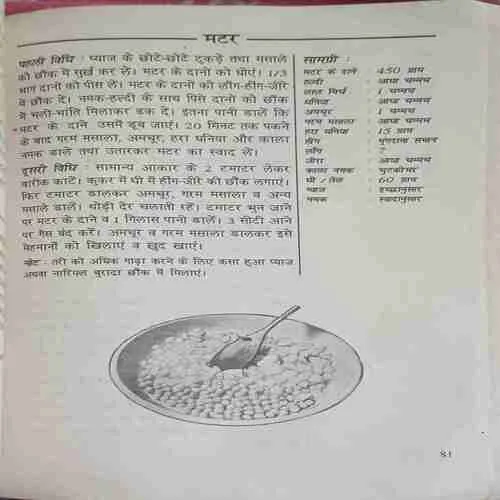 मटर
पहली विधि : प्याज के छोटे-छोटे टुकड़े तथा मसाले
को छौंक में सुर्ख कर लें। मटर के दानों को धोएं। 1/3
भाग दानों को पीस लें। मटर के दानों को लौंग-हींग-जीरे
से छौंक दें। नमक-हल्दी के साथ पिसे दानों को छौंक
में भली-भांति मिलाकर ढक दें। इतना पानी डालें कि
मटर के दाने उसमें डूब जाएं। 20 मिनट तक पकने
के बाद गरम मसाला, अमचूर, हरा धनिया और काला
नमक डालें तथा उतारकर मटर का स्वाद लें।
दूसरी विधि : सामान्य आकार के 2 टमाटर लेकर
बारीक काटें। कुकर में घी में हींग-जीरे की छौंक लगाएं।
फिर टमाटर डालकर अमचूर, गरम मसाला व अन्य
मसाले डालें। थोड़ी देर चलाती रहें। टमाटर भुन जाने
पर मटर के दाने व 1 गिलास पानी डालें। 3 सीटी आने
पर गैस बंद करें। अमचूर व गरम मसाला डालकर इसे
मेहमानों को खिलाएं व खुद खाएं।
नोट : तरी को अधिक गाढ़ा करने के लिए कसा हुआ प्याज
अथवा नारियल बुरादा छौंक में मिलाएं।
सामग्री :
मटर के दाने : 450 ग्राम
हल्दी : आधा चम्मच
लाल मिर्च : 1 चम्मच
धनिया : आधा चम्मच
अमचूर : 1 चम्मच
गरम मसाला : आधा चम्मच
हरा धनिया : 15 ग्राम
हींग : मूंगदाना समान
लौंग : 7
जीरा : आधा चम्मच
काला नमक : चुटकीभर
घी / तेल : 60 ग्राम
प्याज : इच्छानुसार
नमक : स्वादानुसार
81